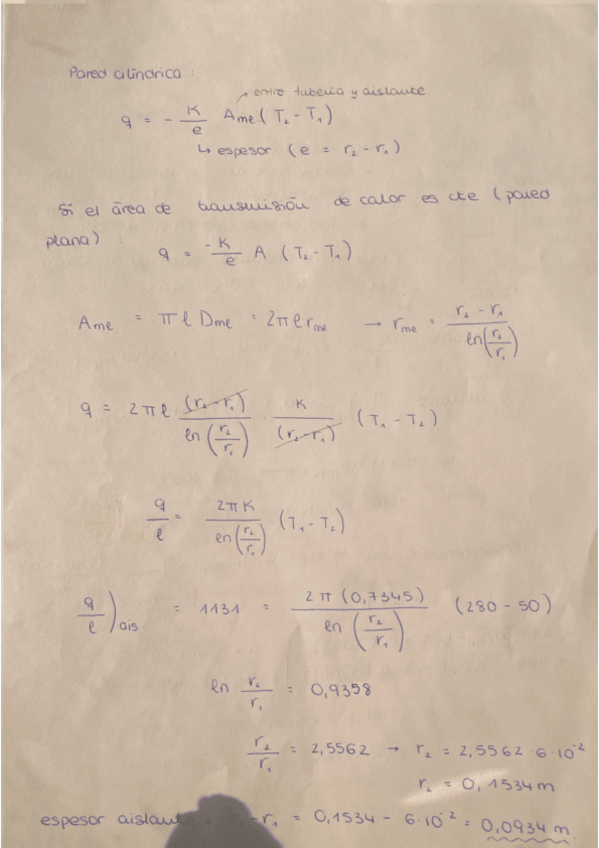 Pared cilíndrica.
→ entre tubería y aislante
q = - K/e Ame (T₂ - T₁)
↳ espesor (e = r₂ - r₁)
Si el área de transmisión de calor es cte (pared
plana)
q = -K/e A (T₂ - T₁)
Ame = π l Dme = 2π l rme → rme = (r₂ - r₁)/ln(r₂/r₁)
q = 2π l (r₂ - r₁)/ln(r₂/r₁) · K/(r₂ - r₁) (T₁ - T₂)
q/l = 2πK/ln(r₂/r₁) (T₁ - T₂)
q/l)ais = 1131 = 2π (0,7345)/ln(r₂/r₁) (280 - 50)
ln r₂/r₁ = 0,9358
r₂/r₁ = 2,5562 → r₂ = 2,5562 · 6·10⁻²
r₂ = 0,1534 m
espesor aislante - r₁ = 0,1534 - 6·10⁻² = 0,0934 m